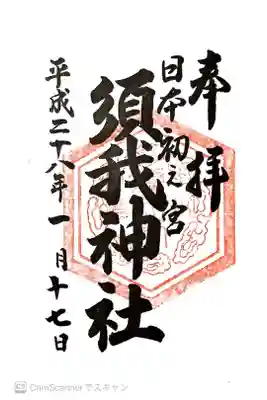 奉拝
日本初之宮
須我神社
平成二十八年一月十七日
CamScanner でスキャン